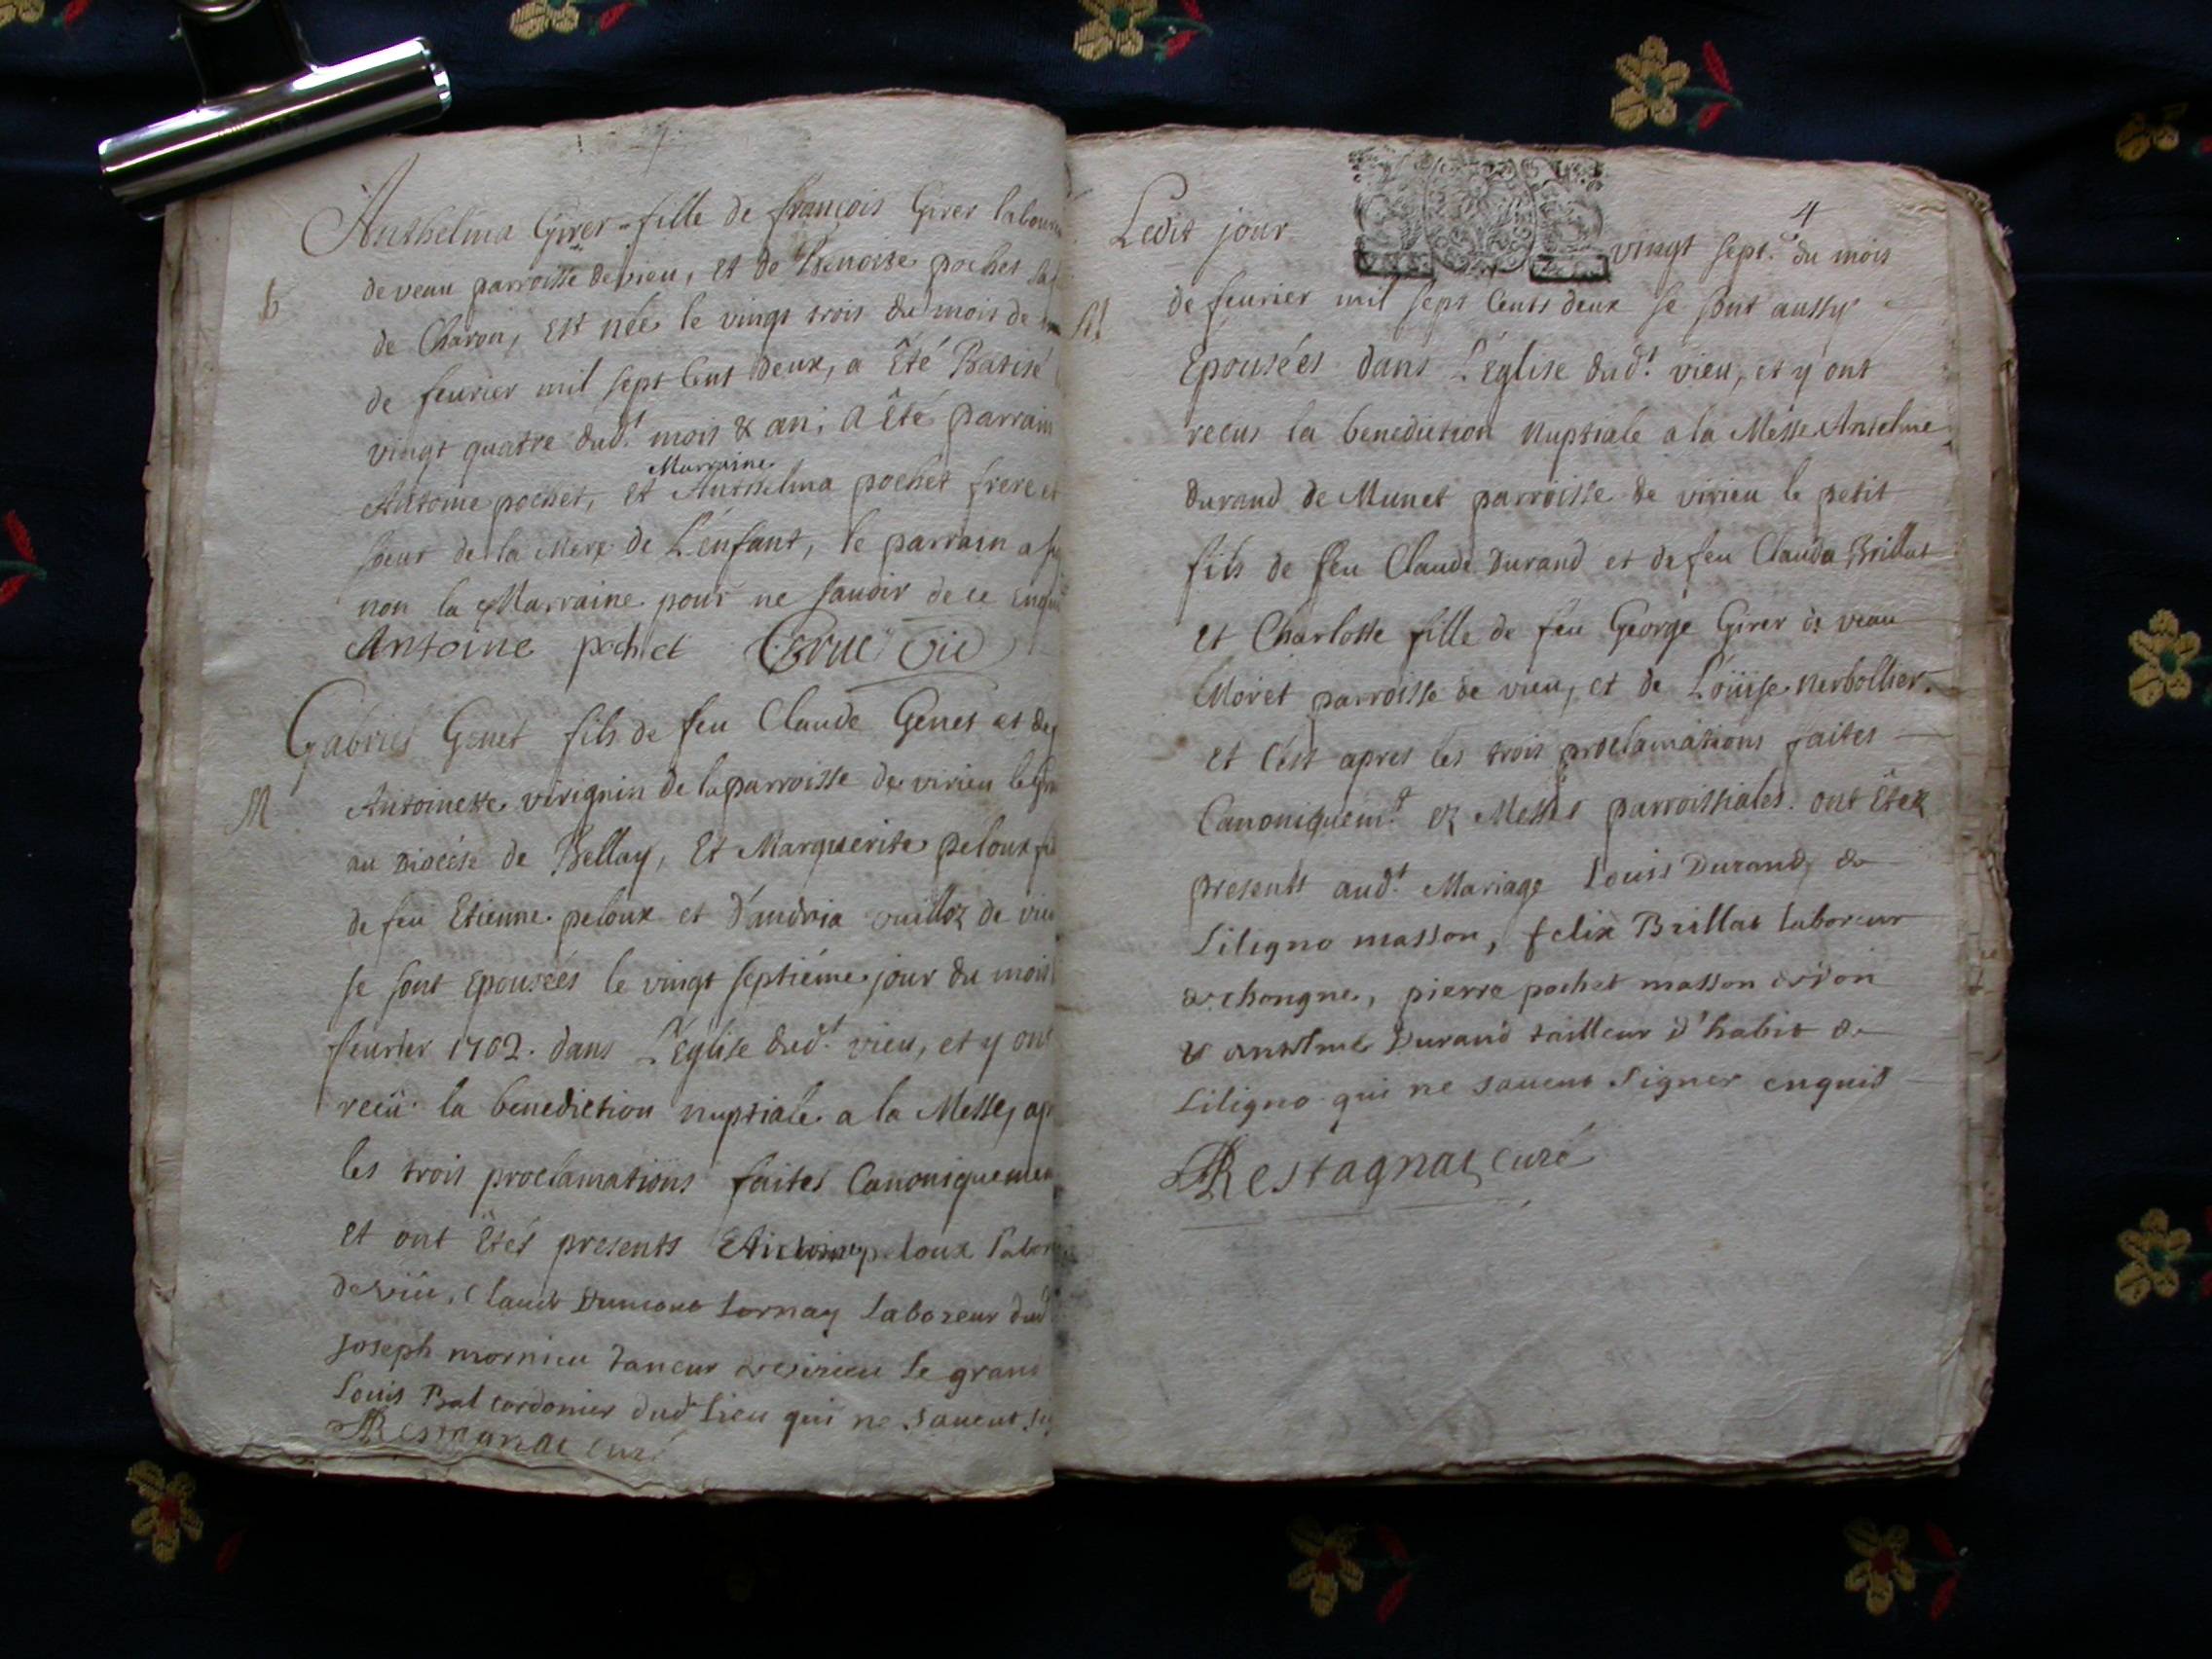 Anthelma Girer fille de françois Girer labour
b
de veau parroisse de vieu, et de Benoite pochet sa
de Charon, est née le vingt trois du mois de
de feurier mil sept Cent deux, a Eté Batisé
vingt quatre dud.t mois & an; a Eté parrain
Marraine
Antoine pochet, et Anthelma pochet frere et
soeur de la Mere de L'enfant, le parrain a
non la Marraine pour ne sauoir de ce enquis
Antoine pochet
Gabriel Genet fils de feu Claude Genet et de
M
Antoinette virignin de la parroisse de virieu le
au Diocése de Bellay, Et Marguerite peloux
de feu Etienne peloux et d'andria vuilloz de
se sont Epouséés le vingt septiéme jour du mois
feurier 1702. dans L'Eglise dud.t vieu, et y ont
recü la benediction nuptiale a la Messe, apr
les trois proclamations faites Canoniquemen
et ont Etés presents peloux labor
de vieu, Claude Dumont Lornay laboreur dud
Joseph mornieu taneur de virieu le grand
Louis Bal cordonier dud lieu qui ne sauent
Restagnat curé
4
Ledit jour vingt sept.e du mois
M
de feurier mil sept Cents deux se sont aussy
Epousées dans L'Eglise dud.t vieu, et y ont
recus la benediction Nuptiale a la Messe Antelme
durand de Munet parroisse de virieu le petit
fils de feu Claude Durand et de feu Clauda Brillat
et Charlotte fille de feu George Girer de veau
Moret parroisse de vieu, et de Loüise Nerbollier.
et C'est apres les trois proclamations faites
Canoniquem.t ez Messes parroissiales. ont Etez
presents aud.t Mariage Louis Durand de
Liligno masson, felix Brillat laboreur
de chongne, pierre pochet masson
& antelme Durand tailleur d'habit de
Liligno qui ne sauent signer enquis
Restagnat curé